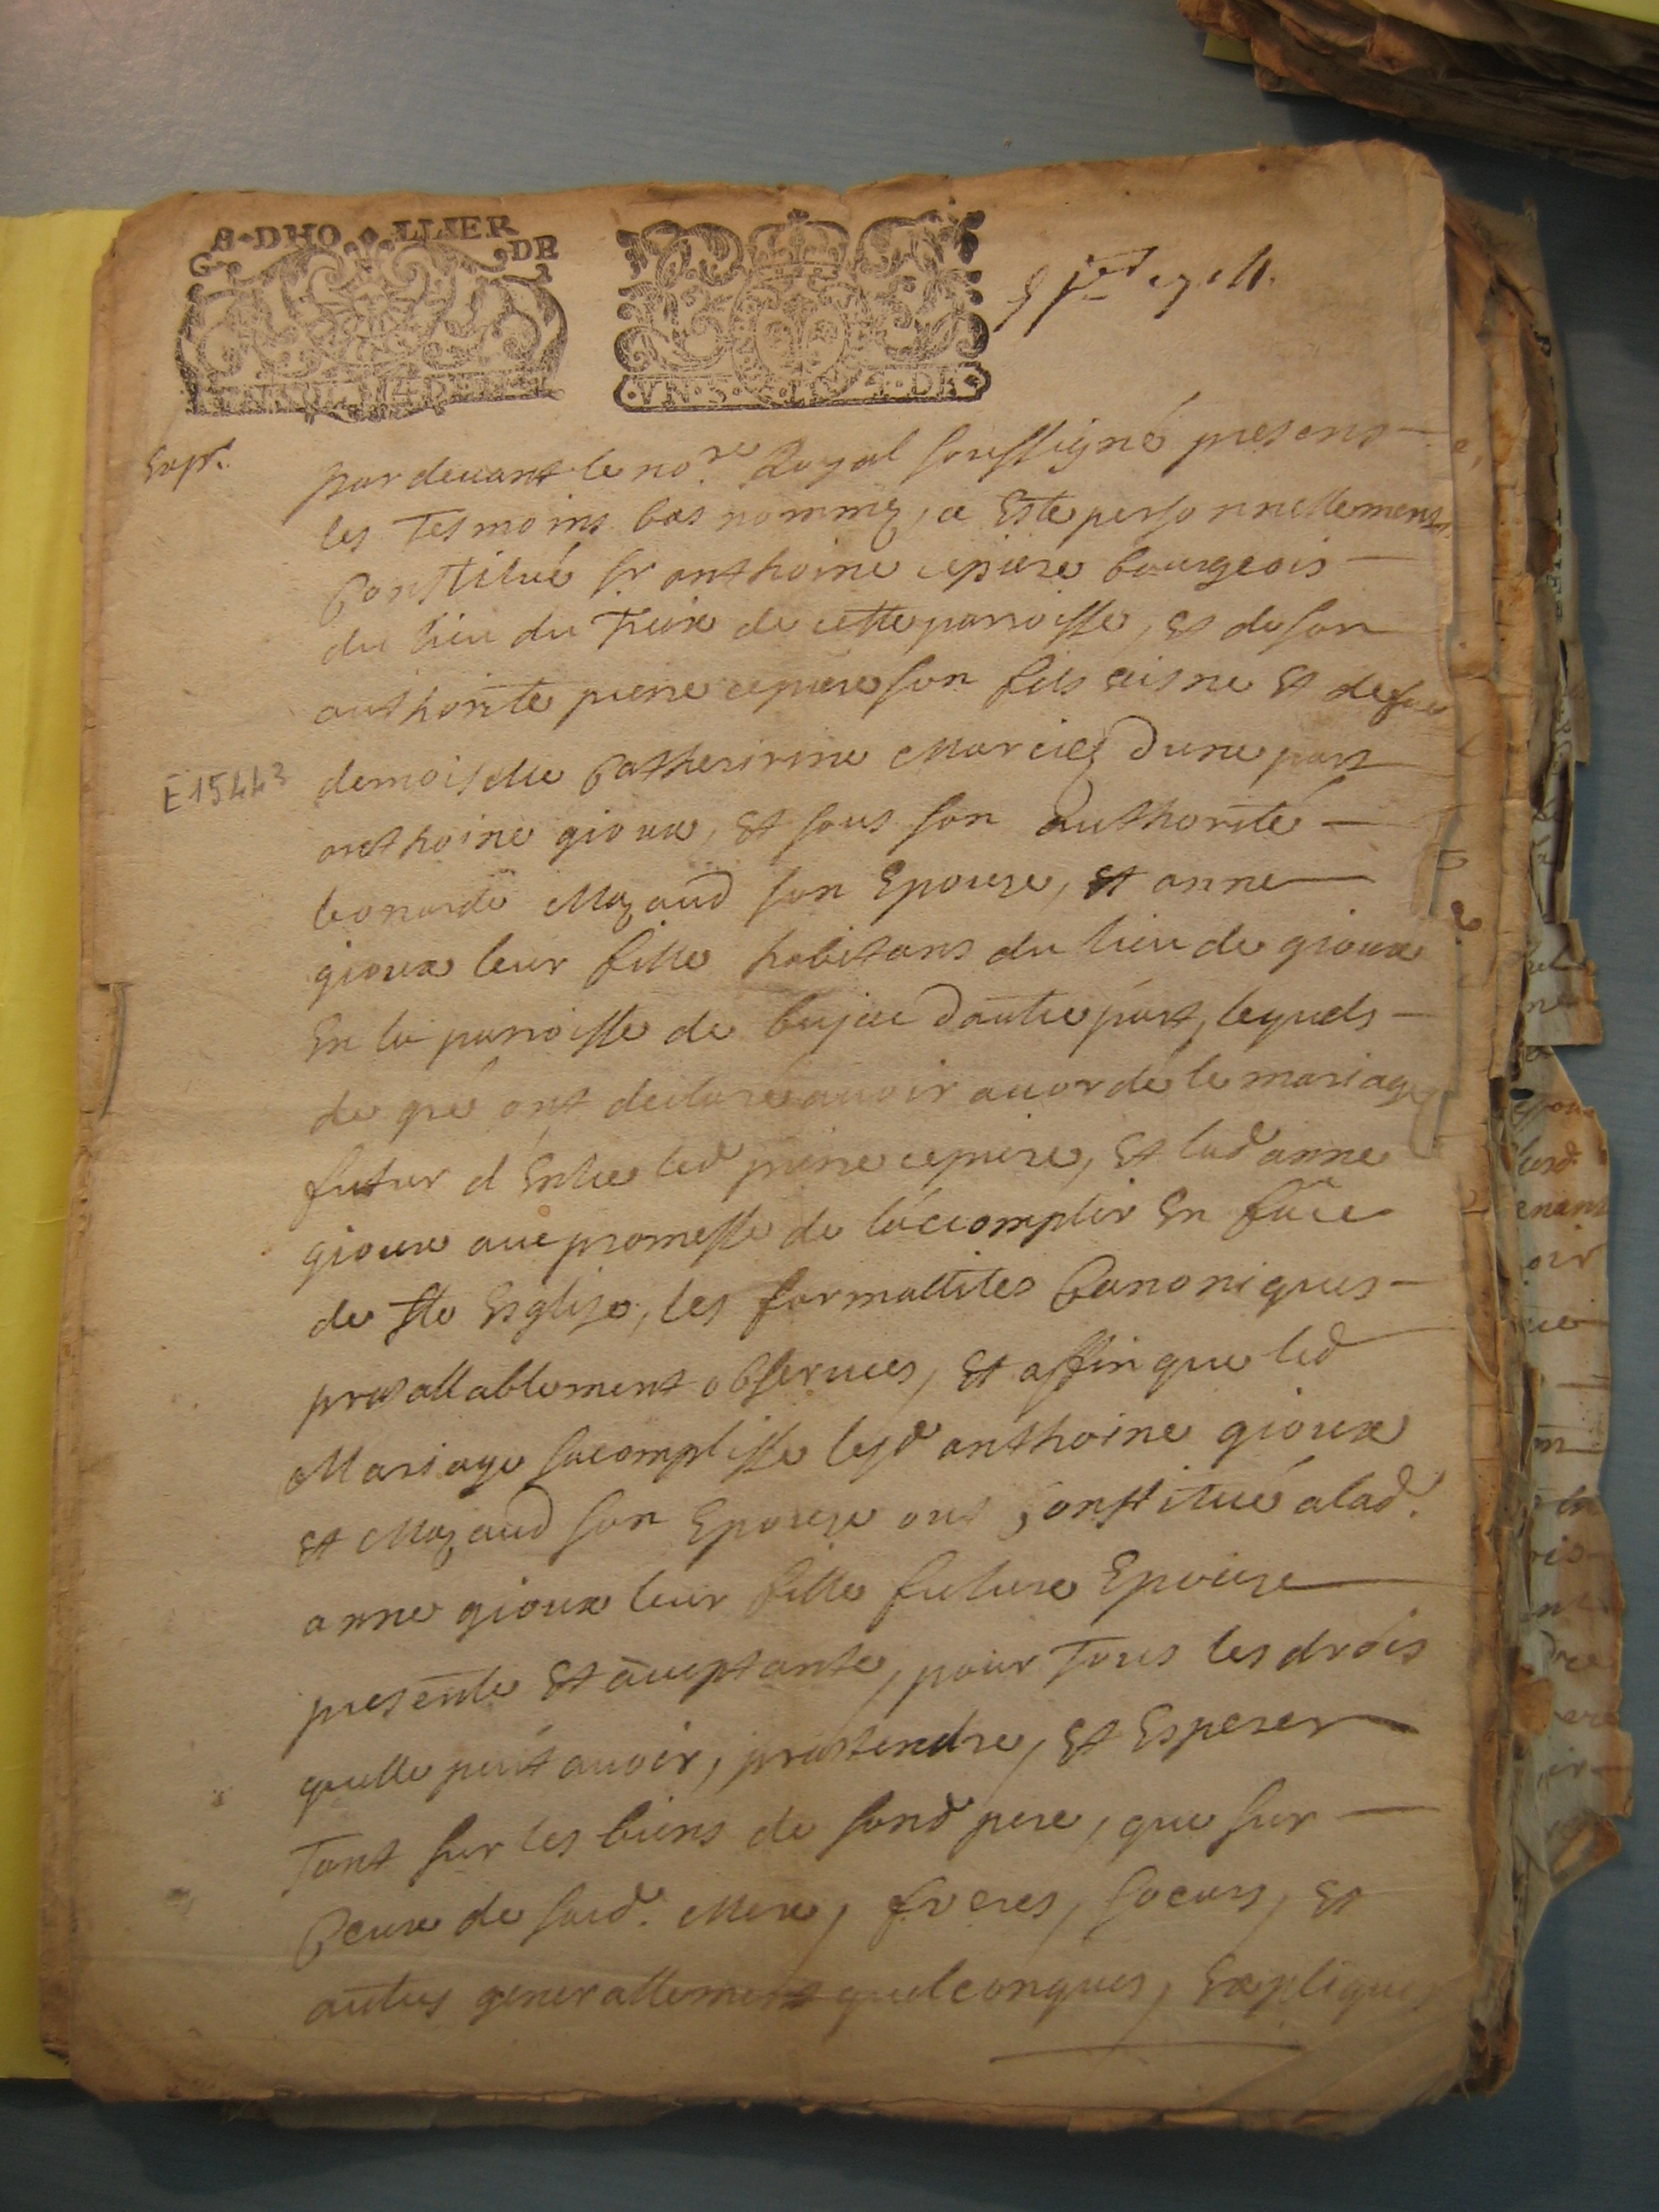 G. DHO LLIER DE
VN. S. DE
Expé.
par devant le no.re Royal soussigné presens
les Tesmoins bas nommez, a Este personnellement
Constitué sr anthoine cepiere bourgeois
du lieu du de cette parroisse, et de son
authorite pierre cepiere son fils aisne et de feue
E15443
demoiselle Catherinne Marcie d'une part
anthoine gioux, et sous son authorité
leonarde Mazaud son Epouze, et anne
gioux leur fille habitans du lieu de gioux
En la parroisse de bujac d'autre part, lequels
de gré ont declaré avoir acordé le mariage
futur d'Entre led pierre cepiere, et lad anne
gioux avec promesse de l'accomplir En face
de Ste Esglize, les formallites Canoniques
preallablement observees, et affin que led
Mariage s'acomplisse lesd anthoine gioux
et Mazaud son Epouze ont constitué a lad.
anne gioux leur fille future Epouze
presente et aceptante, pour Tous les drois
quelle peut avoir, prætendre, et Esperer
Tant sur les biens de sond pere, que sur
Ceux de sad. Mere, freres, soeurs, et
autres generallement quelconques, Expliques